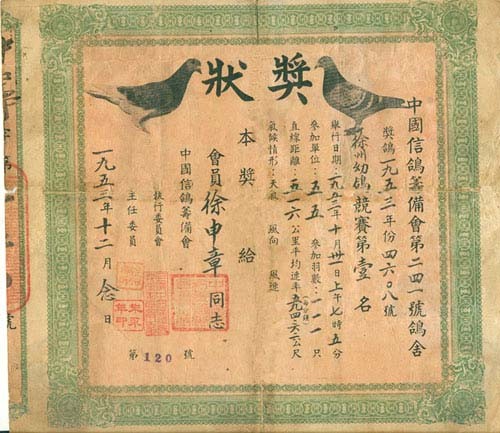 獎狀
中國信鴿籌備會第二四一號鴿舍
獎鴿一九五三年份四六〇八號
徐州幼鴿競賽第壹名
舉行日期：一九五三年十月卅一日上午七時五分
參加單位：五五 參加羽數：一一一只
直線距離：五一六公里平均速率
氣候情形：天氣 風向 風速
本獎給
會員徐申章同志
中國信鴿籌備會
執行委員會
主任委員
一九五三年十二月念日
第120號